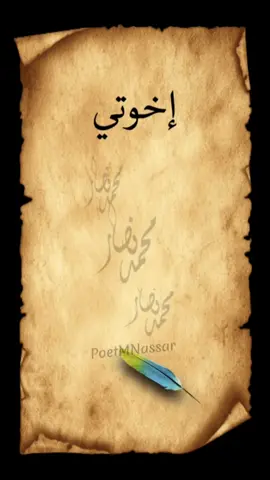 إخوتي
محمد نصار
محمد نصار
محمد نصار
PoetMNassar